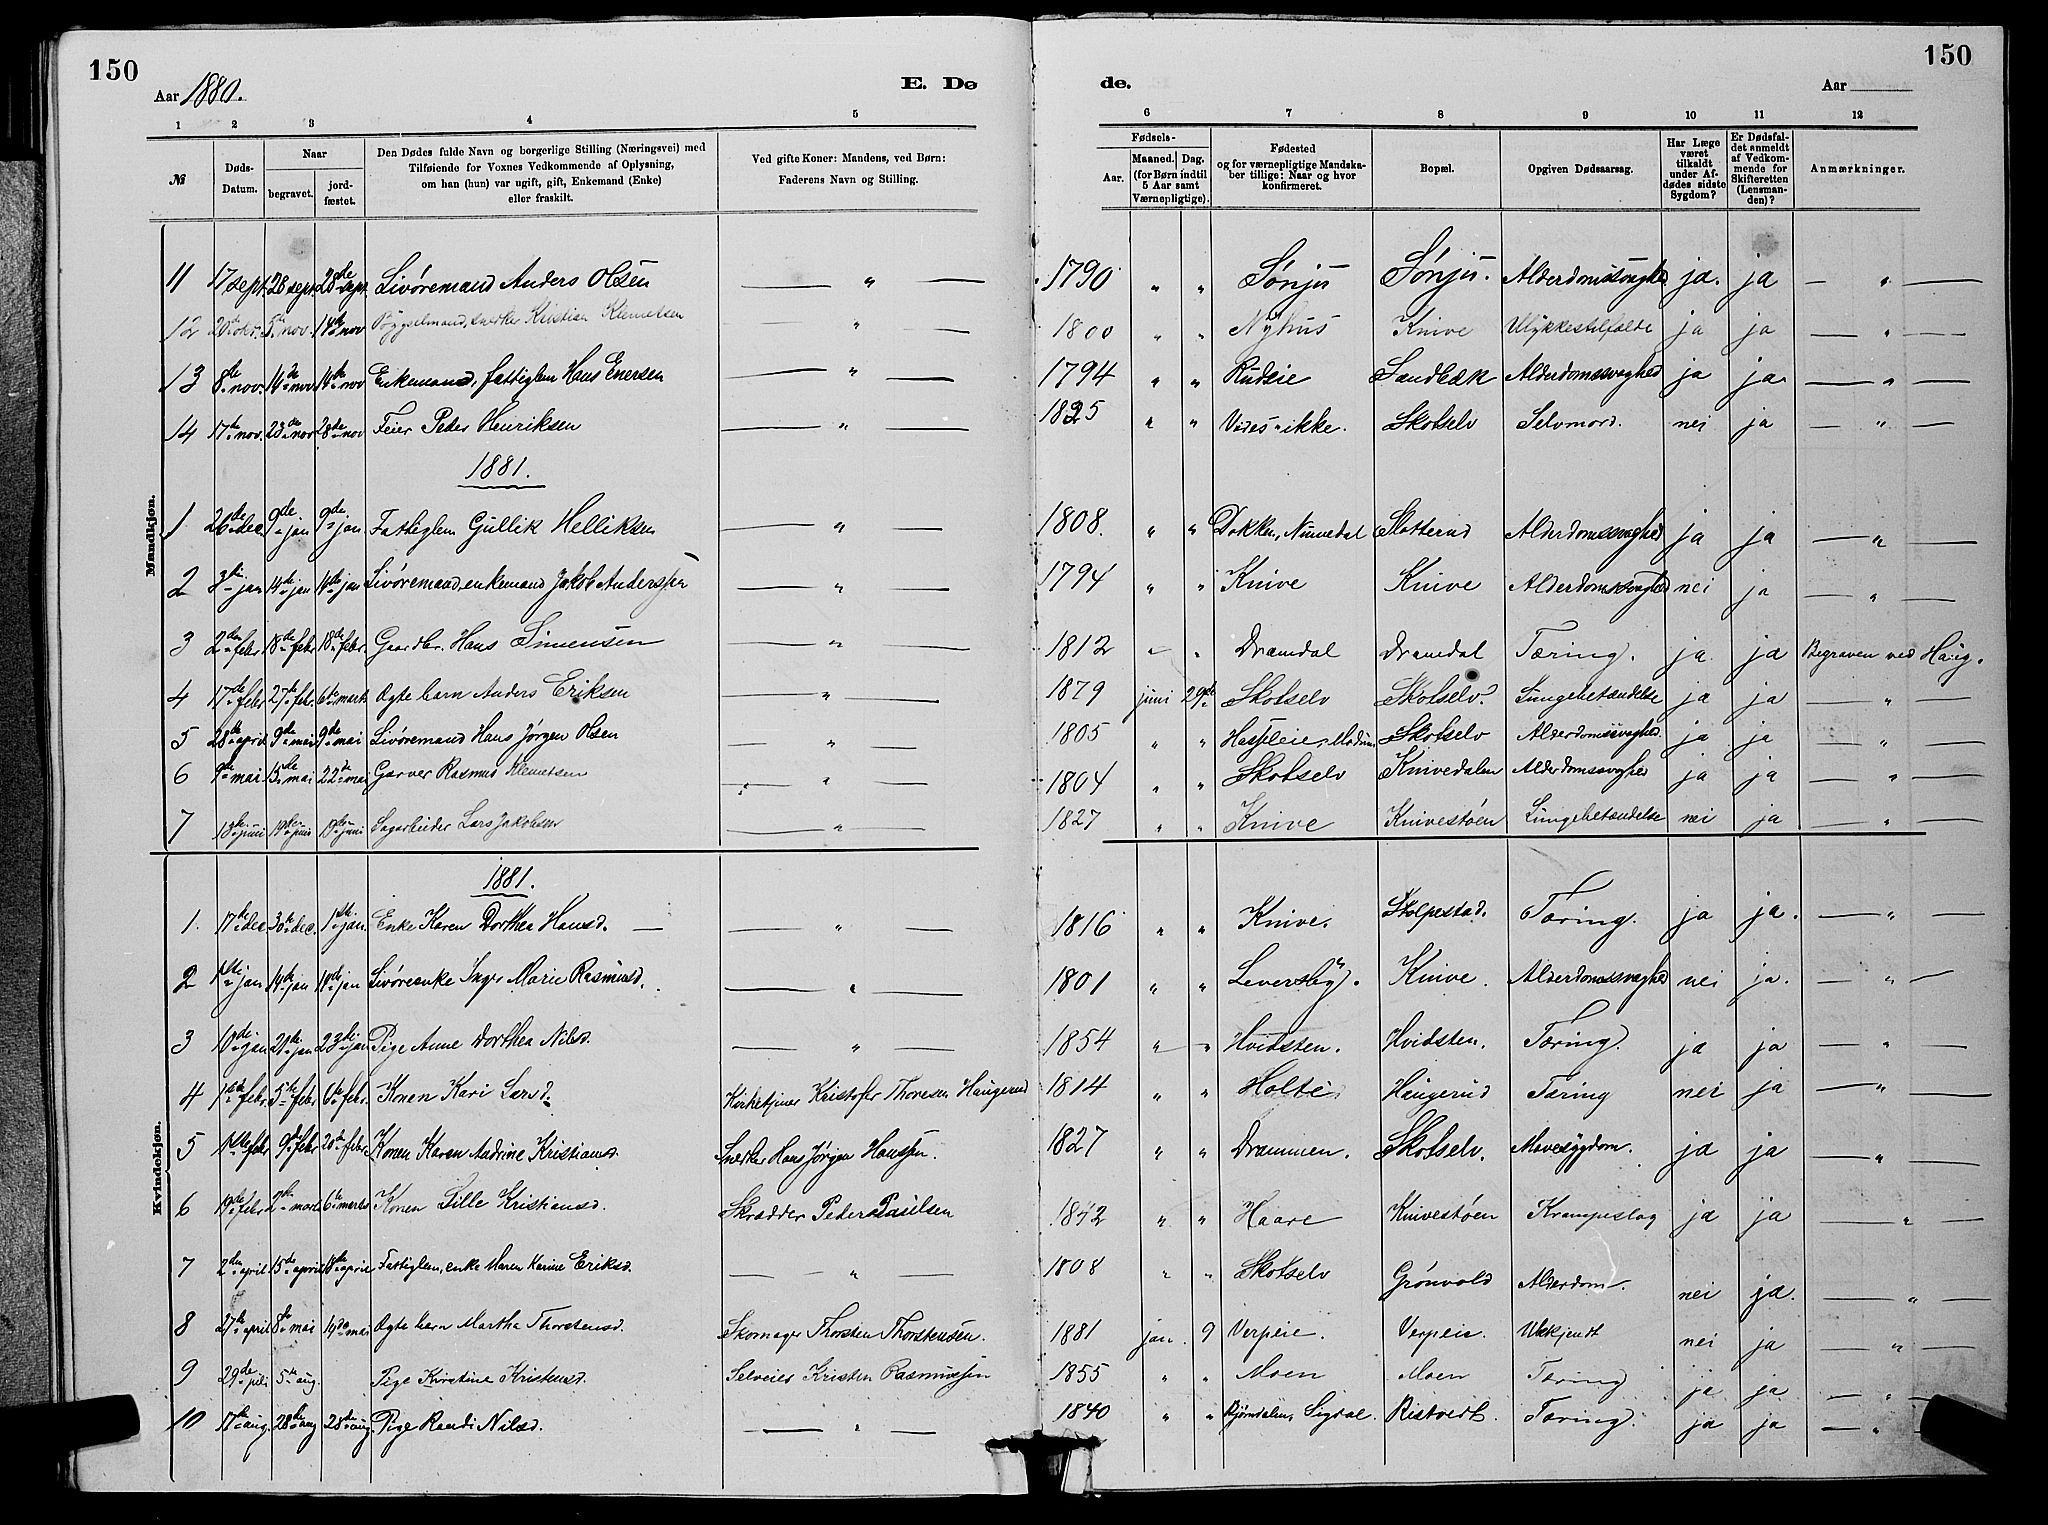 150
150
Aar 1880.
E. Dø
de.
Aar
1 2 3 4 5 6 7 8 9 10 11 12
№
Døds-Datum.
Naar
begravet.
jord-fæstet.
Den Dødes fulde Navn og borgerlige Stilling (Næringsvei) med
Tilføiende for Voxnes Vedkommende af Oplysning,
om han (hun) var ugift, gift, Enkemand (Enke)
eller fraskilt.
Ved gifte Koner: Mandens, ved Børn:
Faderens Navn og Stilling.
Fødsels-
Aar.
Maaned. Dag.
(for Børn indtil
5 Aar samt
Værnepligtige).
Fødested
og for værnepligtige Mandska-
ber tillige: Naar og hvor
konfirmeret.
Bopæl.
Opgiven Dødsaarsag.
Har Læge
været
tilkaldt
under Af-
dødes sidste
Sygdom?
Er Dødsfal-
det anmeldt
af Vedkom-
mende for
Skifteretten
(Lensman-
den)?
Anmærkninger.
Mandkjøn.
11 17 sept. 28 sept. 28de sept. Livøremand Anders Olsen — " — 1790 " " Sønju Sønju. Alderdomssvaghed ja. ja — " —
12 5te nov. 14de nov snerker Kristian Klemetsen — " — 1800 " " Nyhus Knive Ulykkestilfælde ja ja — " —
13 8de nov. 14de nov 14de nov Enkemand, fattiglem Hans Enersen — " — 1794 " " Rudeie Sandbæk Alderdomssvaghed ja ja — " —
14 17de nov. 28de nov 28de nov Feier Peder Henriksen — " — 1825 " " Vides ikke. Skotselv Selvmord. nei ja — " —
1881.
1 26de dec. 9de jan 9de jan Fattiglem Gullik Helliksen — " — 1808. " " Dokken, Numedal Slotterud Alderdomssvaghed ja ja — " —
2 3die jan 14de jan 14de jan Livøremand, enkemand Jakob Anderssen — " — 1794 " " Knive Knive Alderdomssvaghed nei ja — " —
3 2den febr 18de febr 18de febr. Gaardbr. Hans Simensen — " — 1812 " " Dramdal Dramdal Tæring. ja ja Begraven ved Haug.
4 17de febr 27de febr. 6te marts Ægte barn Anders Eriksen — " — 1879 juni 29de Skotselv Skotselv Lungebetændelse ja ja — " —
5 28de april 9de mai 9de mai Livøremand Hans Jørgen Olsen — " — 1805 " " Haspleie, Modum Skotselv Alderdomssvaghed ja ja — " —
6 9de mai 15de mai 22de mai Garver Rasmus Klemetsen — " — 1804 " " Skotselv Knivedalen Alderdomssvaghed ja ja — " —
7 13de juni 19de juni 19de juni Sagarbeider Lars Jakobsen — " — 1827 " " Knive Knivestøen Lungebetændelse nei ja — " —
Kvindekjøn.
1881.
1. 17de dec 30te dec. 1ste jan. Enke Karen Dorthea Hansd. — " — 1816 " " Knive. Skolpestad. Tæring. ja ja. — " —
2 1ste jan 14de jan 14de jan Livøreenke Inger Marie Rasmusd. — " — 1801 " " Leversby. Knive. Alderdomssvaghed nei ja. — " —
3 10de jan 21de jan 23de jan Pige Anne Dorthea Nilsd. — " — 1854 " " Hvidsten. Hvidsten. Tæring. ja ja — " —
4 1ste febr. 5te febr 6te febr. Konen Kari Larsd. Kirketjener Kristofer Thoresen Haugerud 1814 " " Holte Haugerud Tæring nei ja — " —
5 1ste febr 9de febr 20de febr Konen Karen Andrine Kristiansd. Snerker Hans Jørgen Hanssen. 1827 " " Drammen. Skotselv. Mavesygdom. ja ja — " —
6 19de febr 2den marts 6te marts Konen Sille Kristiansd. Skrædder Peder Paulsen 1842 " " Haare Knivestøen Krampeslag ja ja — " —
7 2den april 15de april 18de april Fattiglem, enke Maren Karine Eriksd. — " — 1808 " " Skotselv Grønvold Alderdom. nei ja. — " —
8 27de april 8de mai 19de mai Ægte barn Martha Thorstensd. Skomager Thorsten Thorstensen. 1881 jan. 9 Verpeie. Verpeie. Ubekjendt nei ja — " —
9 29de juli 5te aug. Pige Kirstine Kristensd. Selveier Kristen Rasmussen 1855 " " Moen Moen Tæring ja ja — " —
10 17de aug. 28de aug 28de aug. Pige Randi Nilsd. — " — 1840 " " Bjørndalen, Sigdal. Ristvedt. Tæring. ja ja — " —